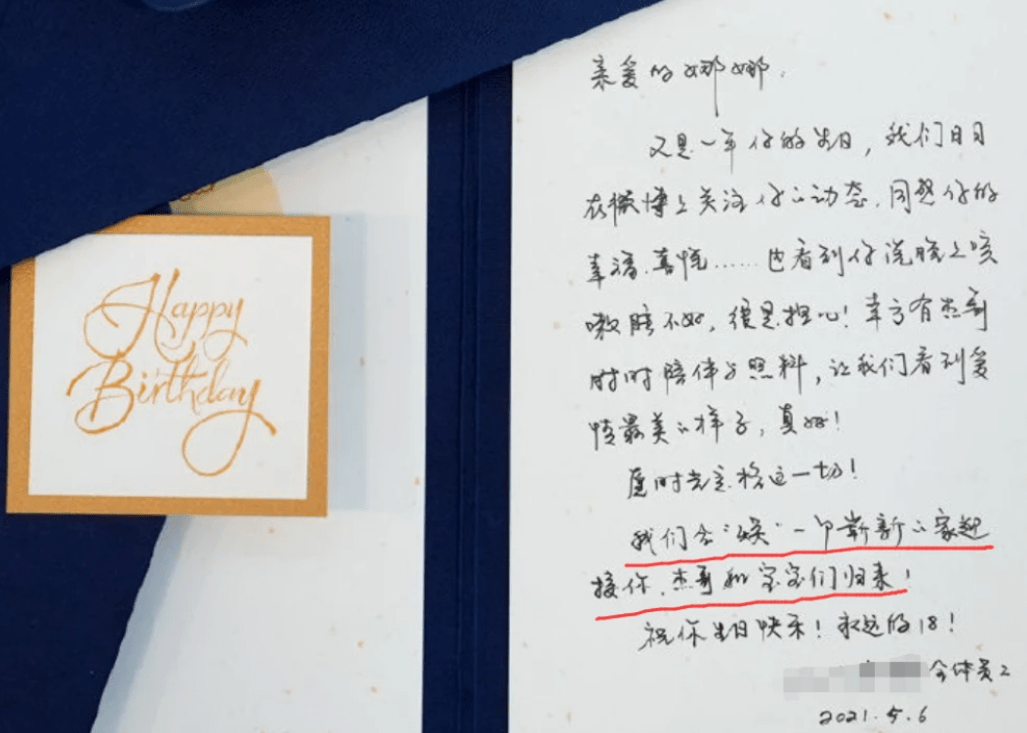 Happy
Birthday
亲爱的娜娜.
又是一年你的生日，我们日日
在微博上关注你的动态,同感你的
幸福.喜悦……也看到你说晚上咳
嗽睡不好，很是担心！幸亏有杰哥
时时陪伴与照料，让我们看到爱
情最美的样子，真好！
愿时光定格这一切！
我们会"焕"一个崭新的家迎
接你.杰哥和宝宝们归来！
祝你生日快乐！永远的18！
全体员工
2021.5.6